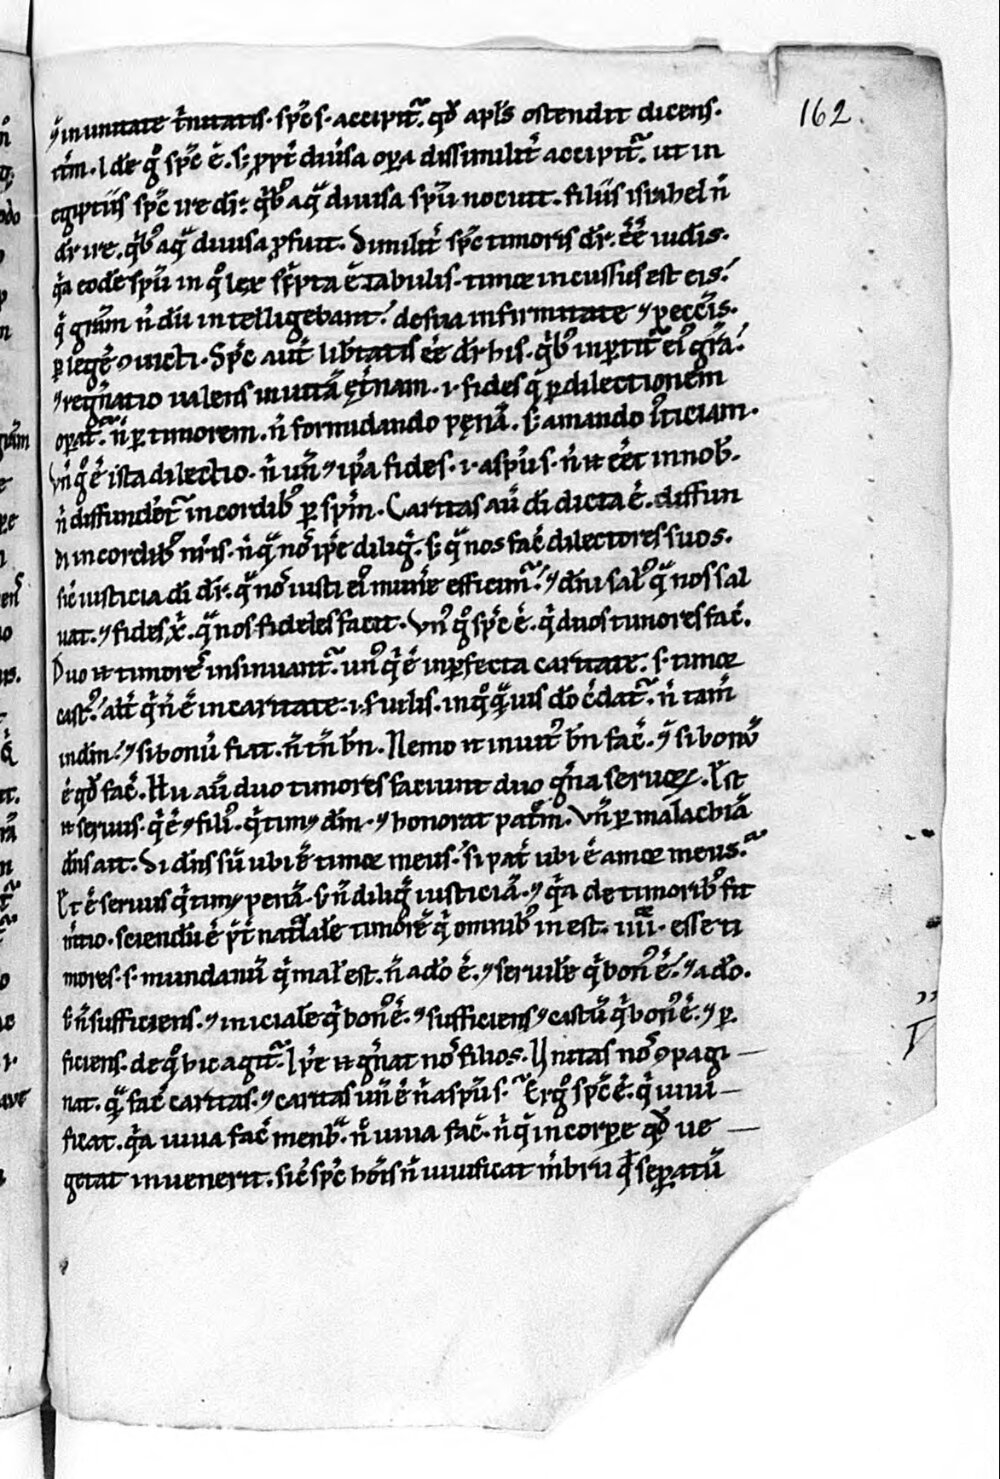 162
qi in unitate trinitatis. spc s. accipit᷑. qđ apłs ostendit dicens.
egiptiis spc ire dr̄. qͥbꝰ aq̄ diuisa spū nocuit. filiis israhel n̄
dr̄ ire. qͥbꝰ aq̄ diuisa ꝓfuit. Similit̄ spc timoris dr̄. eē̄ iudīs.
qͥa eodē spū in qͦ lex sc̄pta ē tabulis. timor incussus est eis.
qͥ gr̄am n̄ dū intelligebant. de sua infirmitate ⁊ peccīs.
ꝑ legē ꝯuicti. Spc aut̄ libtatis eē dr̄ his. qͥbꝰ inꝑtit᷑ eiꝰ gr̄a.
⁊ regn̄atio ualens in uitā et̄nam. .i. fides q̄ ꝑ dilectionem
opat᷑. n̄ ꝑ timorem. n̄ formidando penā. s; amando iusticiam.
Vn̄ gͦ ē ista dilectio. n̄ un̄ ⁊ ipa fides. .i. a spū s. n̄ .n. eēt in nob.
n̄ diffundet᷑ in cordibꝰ ꝑ spm̄. Caritas aū di dicta ē. diffun
di in cordibꝰ nr̄is. n̄ q̄ noͦ ipe diligͭ. s; q̄ nos fac̄ dilectores suos.
sic̄ iusticia di dr̄. q̄ noͦ iusti eiꝰ mun̄e efficim᷑. ⁊ dn̄i salꝰ q̄ nos sal
uat. ⁊ fides x̄. q̄ nos fideles facit. Vnꝰ gͦ spc ē. qͥ duos timores fac̄.
Duo .n. timores insinuant᷑. unꝰ qͥ ē in ꝑfecta caritate. s. timor
castꝰ. alt̄ qͥ n̄ ē in caritate. .i. s̄uilis. in qͦ q̄uis dō c̄dat᷑. n̄ tam̄
in dm̄. ⁊ si bonū fiat. n̄ tn̄ bn̄. Nemo .n. inuitꝰ bn̄ fac̄. ⁊ si bonū
ē qđ fac̄. Hii aū duo timores faciunt duo gn̄a seruoꝝ. Est
.n. seruus. qͥ ē ⁊ filiꝰ. qͥ tim; dm̄. ⁊ honorat patm̄. Vn̄ ꝑ malachiā
dn̄s ait. Si dn̄s sū ubi ē timor meus. si pat̄ ubi ē amor meus.
Et ē seruus qͥ tim; penā. s; n̄ diligͭ iusticiā. ⁊ qͥa de timoribꝰ fit
m̄tio. sciendū ē p̄t naťałe timorē qͥ omnibꝰ inest. iiiiᵒʳ esse ti
mores. s. mundanū qͥ mał est. n̄ a dō ē. ⁊ seruiłe qͥ bonꝰ ē. ⁊ a dō.
s; n̄ sufficiens. ⁊ iniciale qͥ bonꝰ ē. ⁊ sufficiens ⁊ castū qͥ bonꝰ ē. ⁊ ꝑ
ficiens. de qͦ hic agit᷑. Ipe .n. gn̄at noͦ filios. Vnitas noͦ ꝯpagi
nat. q̄ fac̄ caritas. ⁊ caritas un̄ ē n̄ a spū s. Ergͦ spc ē. qͥ uiui
ficat. qͥa uiua fac̄ menb̄. n̄ uiua fac̄. n̄ q̄ in corpe qđ ue
getat inuenerit. sic̄ spc hoīs n̄ uiuificat m̄bru qđ sepatū